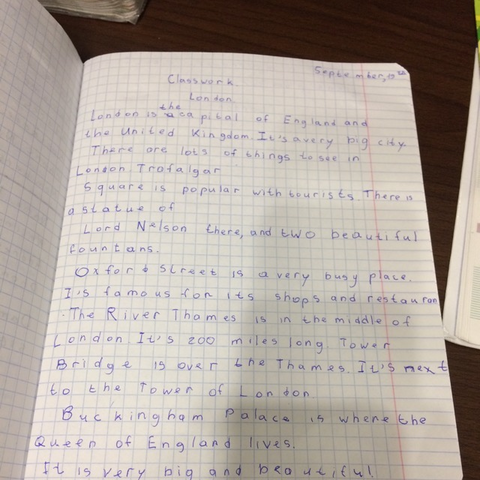 September, 19
Classwork.
London.
London is the capital of England and
the United Kingdom. It's a very big city.
There are lots of things to see in
London. Trafalgar
Square is popular with tourists. There is
a statue of
Lord Nelson there, and two beautiful
fountans.
Oxford Street is a very busy place.
I's famous for its shops and restauran
The River Thames is in the middle of
London. It's 200 miles long. Tower
Bridge is over the Thames. It's next
to the Tower of London.
Buckingham Palace is where the
Queen of England lives.
It is very big and beautiful.